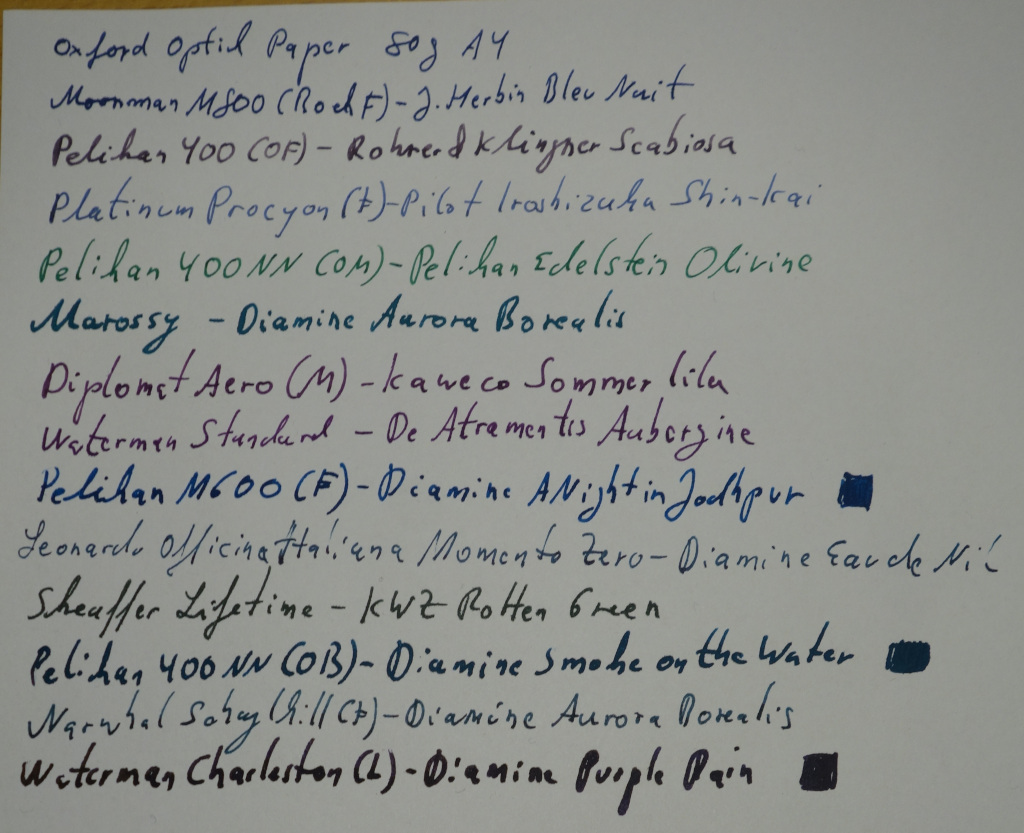 Oxford Optik Paper 80g A4
Moonman M800 (Bock F) - J. Herbin Bleu Nuit
Pelikan 400 (OF) - Rohrer & Klingner Scabiosa
Platinum Procyon (F) - Pilot Iroshizuku Shin-kai
Pelikan 400NN (OM) - Pelikan Edelstein Olivine
Marossy - Diamine Aurora Borealis
Diplomat Aero (M) - Kaweco Sommer lila
Waterman Standard - De Atramentis Aubergine
Pelikan M600 (F) - Diamine A Night in Jodhpur
Leonardo Officina Italiana Momento Zero - Diamine Eau de Nil
Sheaffer Lifetime - KWZ Rotten Green
Pelikan 400NN (OB) - Diamine Smoke on the Water
Narwhal (F) - Diamine Aurora Borealis
Waterman Charleston (L) - Diamine Purple Pain